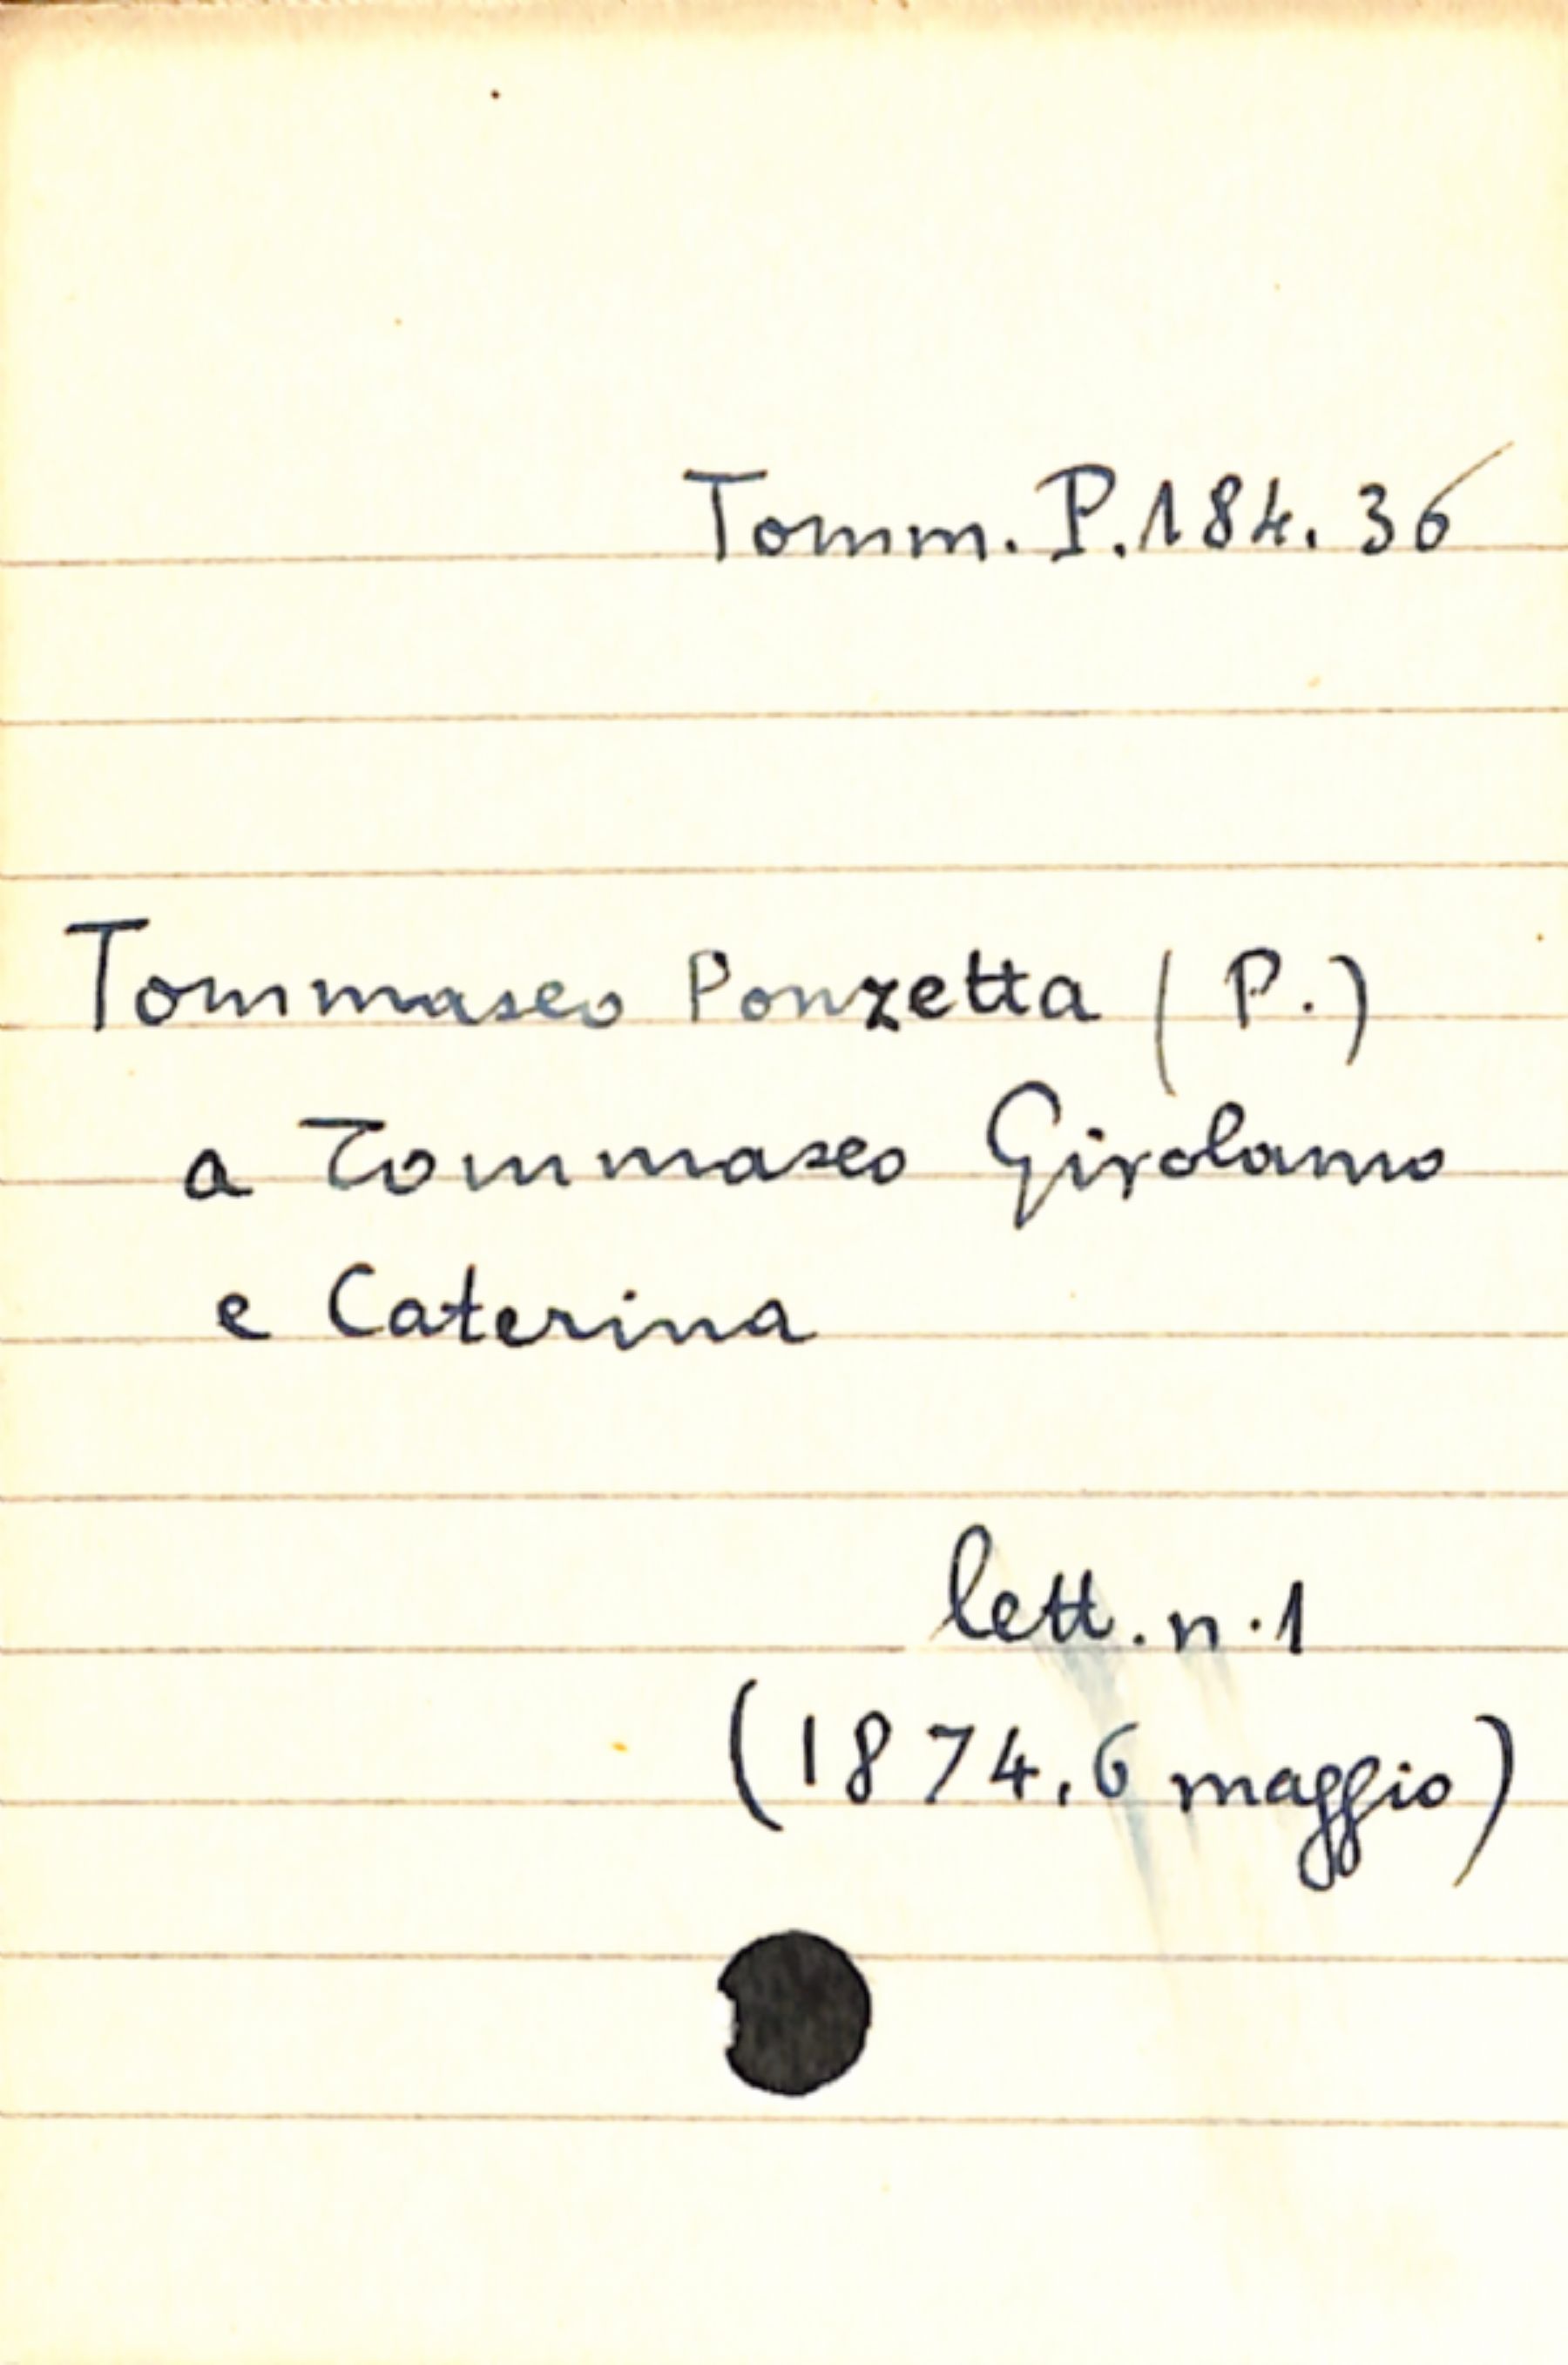 Tomm. P. 184. 36
Tommaseo Ponzetta (P.)
a Tommaseo Girolamo
e Caterina
lett. n. 1
(1874, 6 maggio)